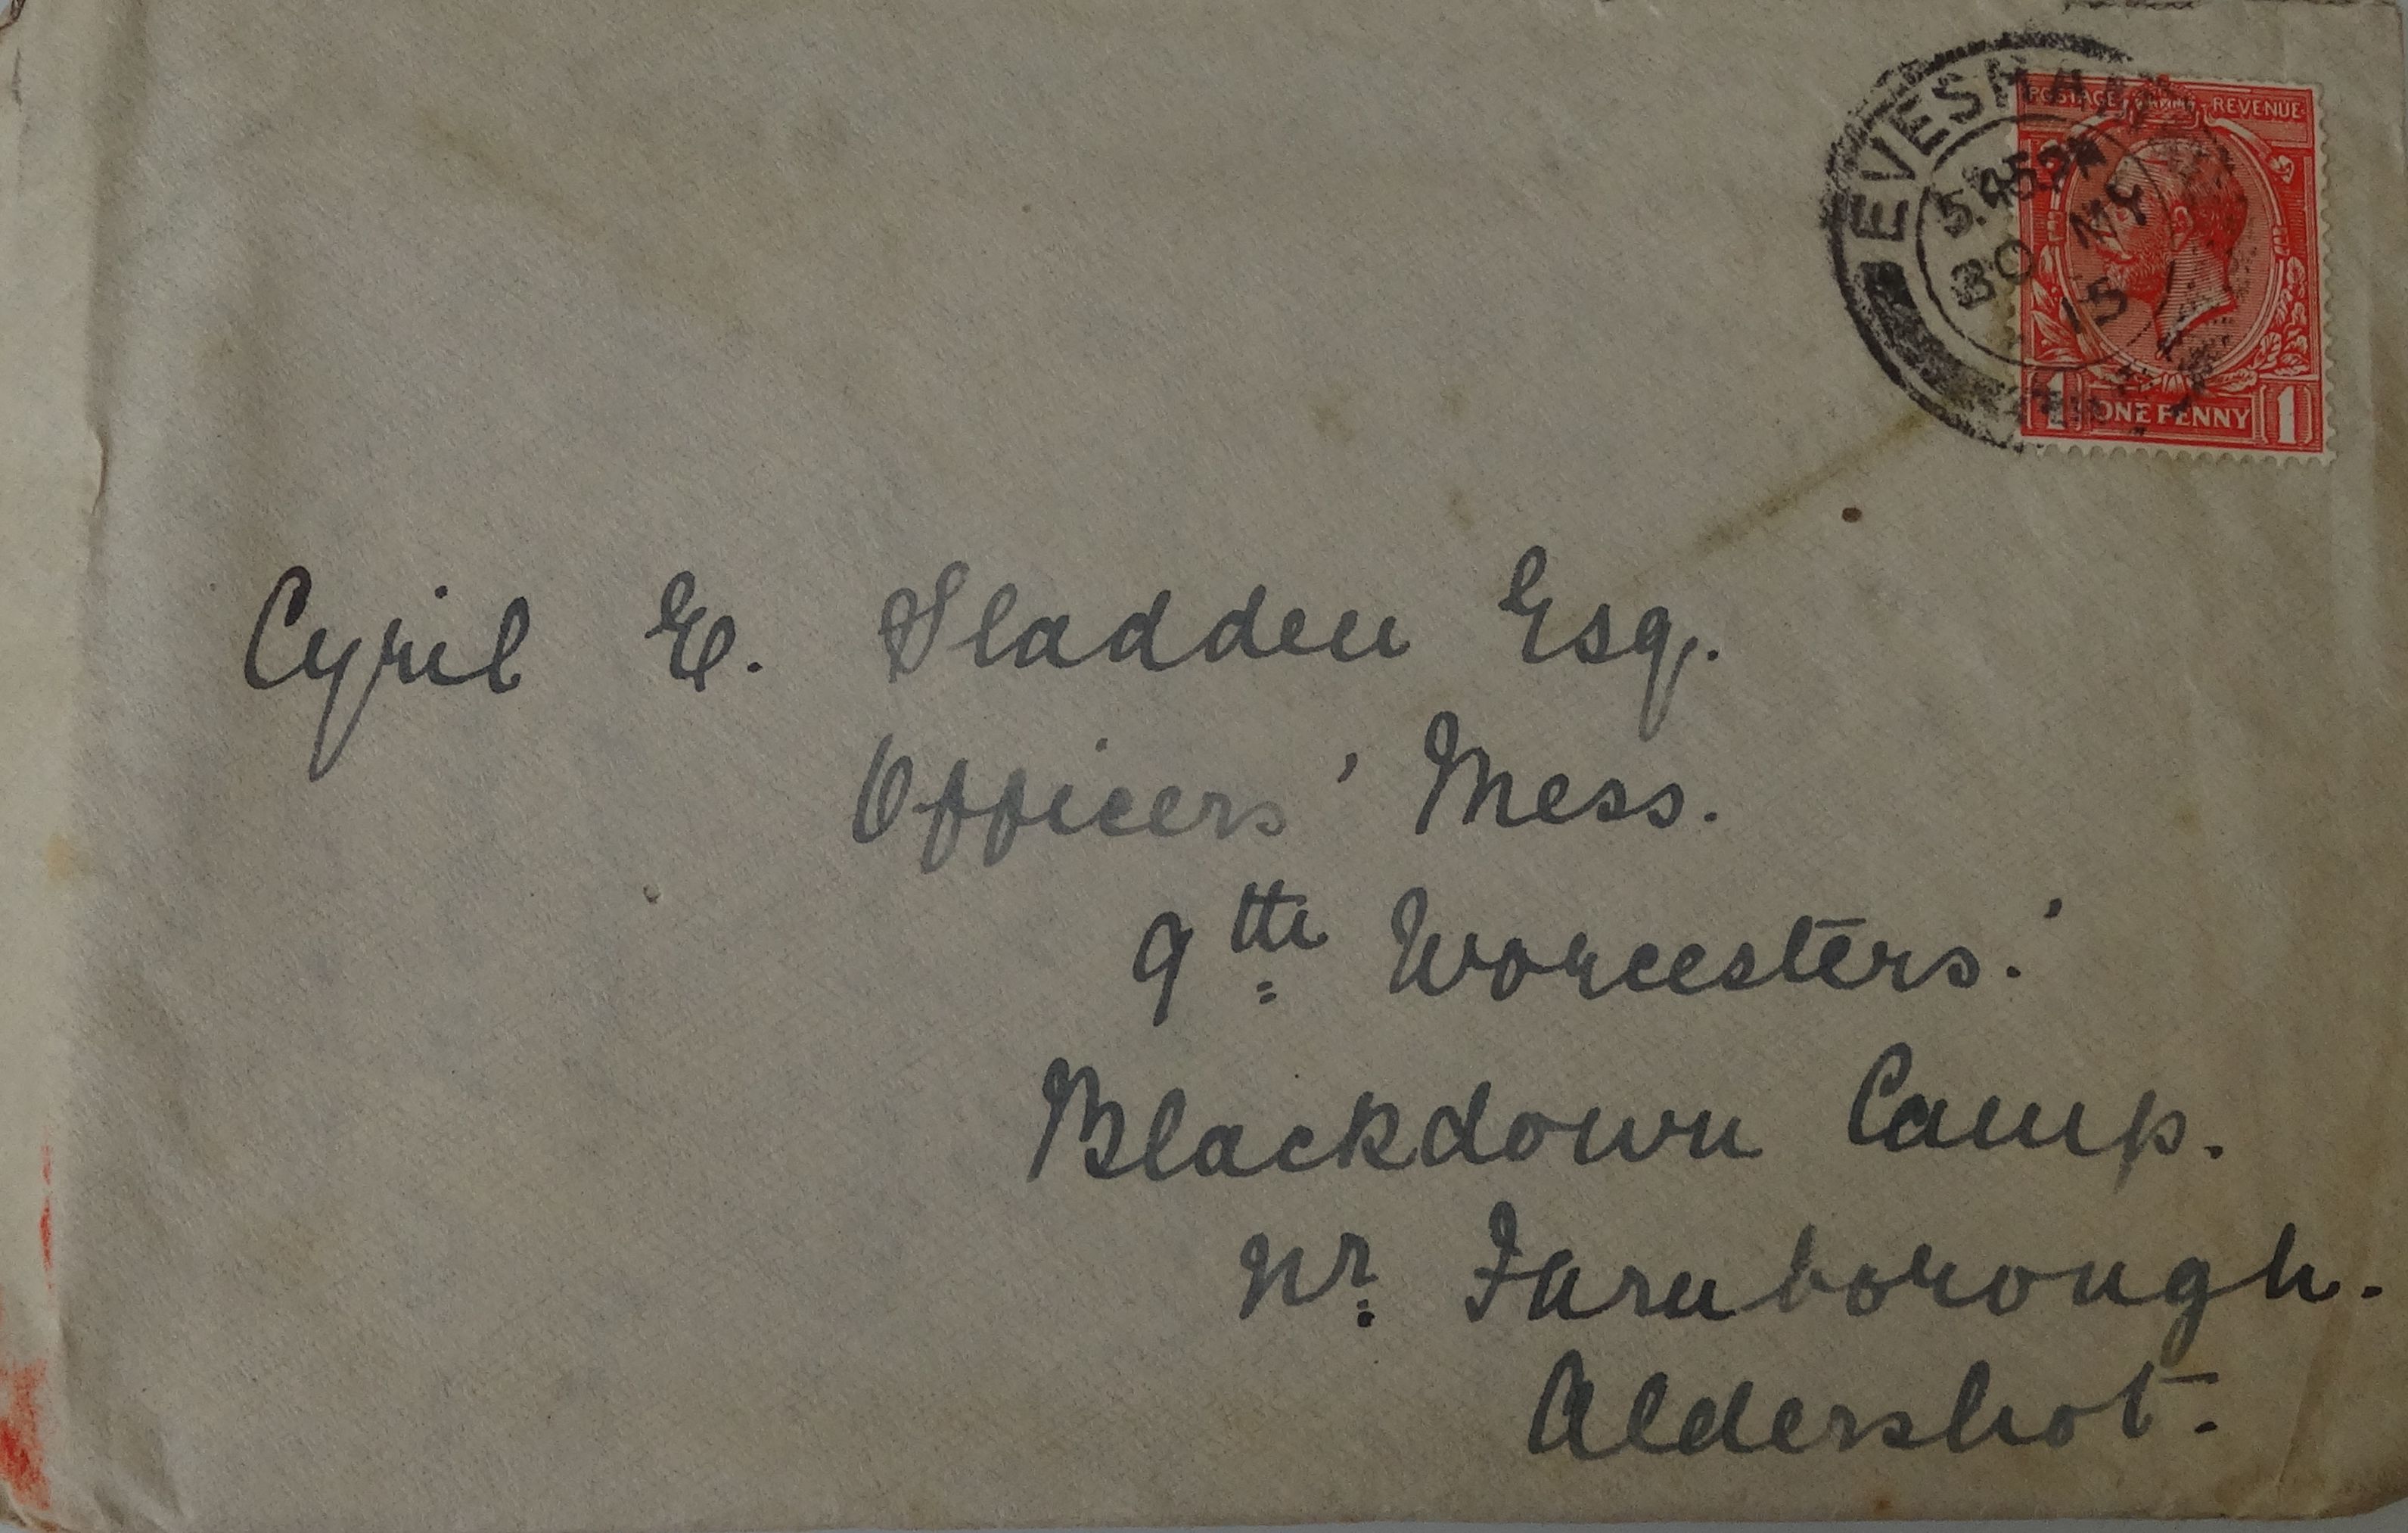 EVESHAM
5.45 PM
30 MY
15
POSTAGE REVENUE
1 ONE PENNY 1
Cyril E. Sladden Esq.
Officers' Mess.
9th Worcesters.'
Blackdown Camp.
Nr. Farnborough.
Aldershot.